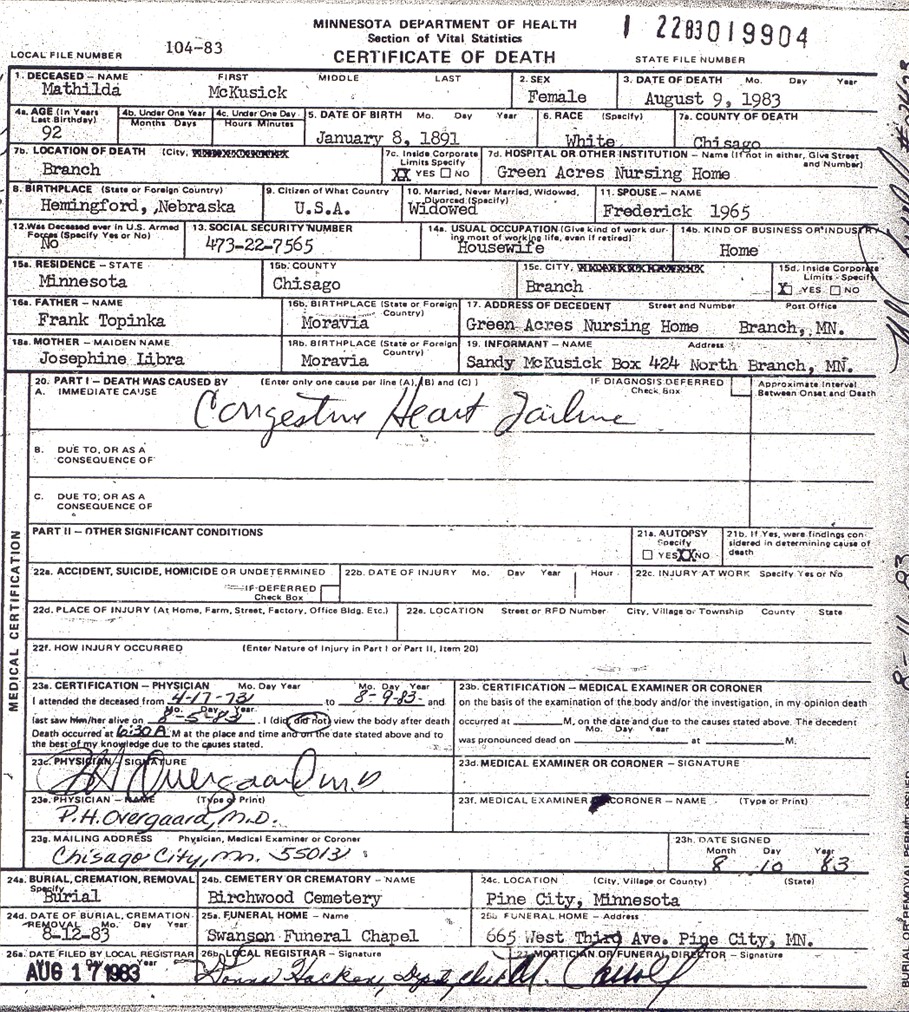 MINNESOTA DEPARTMENT OF HEALTH
Section of Vital Statistics
CERTIFICATE OF DEATH
1 2283019904
LOCAL FILE NUMBER 104-83
STATE FILE NUMBER
1. DECEASED – NAME FIRST MIDDLE LAST
Mathilda McKusick
2. SEX
Female
3. DATE OF DEATH Mo. Day Year
August 9, 1983
4a. AGE (In Years Last Birthday)
92
4b. Under One Year
Months Days
4c. Under One Day
Hours Minutes
5. DATE OF BIRTH Mo. Day Year
January 8, 1891
6. RACE (Specify)
White
7a. COUNTY OF DEATH
Chisago
7b. LOCATION OF DEATH (City,
Branch
7c. Inside Corporate Limits Specify
XX YES NO
7d. HOSPITAL OR OTHER INSTITUTION – Name (If not in either, Give Street and Number)
Green Acres Nursing Home
8. BIRTHPLACE (State or Foreign Country)
Hemingford, Nebraska
9. Citizen of What Country
U.S.A.
10. Married, Never Married, Widowed, Divorced (Specify)
Widowed
11. SPOUSE – NAME
Frederick 1965
12. Was Deceased ever in U.S. Armed Forces (Specify Yes or No)
No
13. SOCIAL SECURITY NUMBER
473-22-7565
14a. USUAL OCCUPATION (Give kind of work during most of working life, even if retired)
Housewife
14b. KIND OF BUSINESS OR INDUSTRY
Home
15a. RESIDENCE – STATE
Minnesota
15b. COUNTY
Chisago
15c. CITY,
Branch
15d. Inside Corporate Limits - Specify
X YES NO
16a. FATHER – NAME
Frank Topinka
16b. BIRTHPLACE (State or Foreign Country)
Moravia
17. ADDRESS OF DECEDENT Street and Number Post Office
Green Acres Nursing Home Branch, MN.
18a. MOTHER – MAIDEN NAME
Josephine Libra
18b. BIRTHPLACE (State or Foreign Country)
Moravia
19. INFORMANT – NAME Address
Sandy McKusick Box 424 North Branch, MN.
MEDICAL CERTIFICATION
20. PART I – DEATH WAS CAUSED BY (Enter only one cause per line (A), (B) and (C) )
IF DIAGNOSIS DEFERRED Check Box
Approximate Interval Between Onset and Death
A. IMMEDIATE CAUSE
Congestive Heart Failure
B. DUE TO, OR AS A CONSEQUENCE OF
C. DUE TO, OR AS A CONSEQUENCE OF
PART II – OTHER SIGNIFICANT CONDITIONS
21a. AUTOPSY Specify
YES XX NO
21b. If Yes, were findings considered in determining cause of death
22a. ACCIDENT, SUICIDE, HOMICIDE OR UNDETERMINED
IF DEFERRED Check Box
22b. DATE OF INJURY Mo. Day Year Hour
22c. INJURY AT WORK Specify Yes or No
22d. PLACE OF INJURY (At Home, Farm, Street, Factory, Office Bldg. Etc.)
22e. LOCATION Street or RFD Number City, Village or Township County State
22f. HOW INJURY OCCURRED (Enter Nature of Injury in Part I or Part II, Item 20)
23a. CERTIFICATION – PHYSICIAN Mo. Day Year Mo. Day Year
I attended the deceased from 4-17-73 to 8-9-83 and
Mo. Day Year
last saw him/her alive on 8-5-83. I (did) (did not) view the body after death
Death occurred at 6:30 A M at the place and time and on the date stated above and to
the best of my knowledge due to the causes stated.
23b. CERTIFICATION – MEDICAL EXAMINER OR CORONER
on the basis of the examination of the body and/or the investigation, in my opinion death
occurred at M, on the date and due to the causes stated above. The decedent
Mo. Day Year
was pronounced dead on at M.
23c. PHYSICIAN SIGNATURE
Overgaard MD
23d. MEDICAL EXAMINER OR CORONER – SIGNATURE
23e. PHYSICIAN – NAME (Type or Print)
P.H. Overgaard, M.D.
23f. MEDICAL EXAMINER CORONER – NAME (Type or Print)
23g. MAILING ADDRESS Physician, Medical Examiner or Coroner
Chisago City, Mn. 55013
23h. DATE SIGNED
Month Day Year
8 10 83
24a. BURIAL, CREMATION, REMOVAL Specify
Burial
24b. CEMETERY OR CREMATORY – NAME
Birchwood Cemetery
24c. LOCATION (City, Village or County) (State)
Pine City, Minnesota
24d. DATE OF BURIAL, CREMATION REMOVAL Mo. Day Year
8-12-83
25a. FUNERAL HOME – Name
Swanson Funeral Chapel
25b FUNERAL HOME – Address
665 West Third Ave. Pine City, MN.
26a. DATE FILED BY LOCAL REGISTRAR
AUG 17 1983
26b. LOCAL REGISTRAR – Signature
27. MORTICIAN OR FUNERAL DIRECTOR – Signature
8-11-83
BURIAL OR REMOVAL PERMIT ISSUED